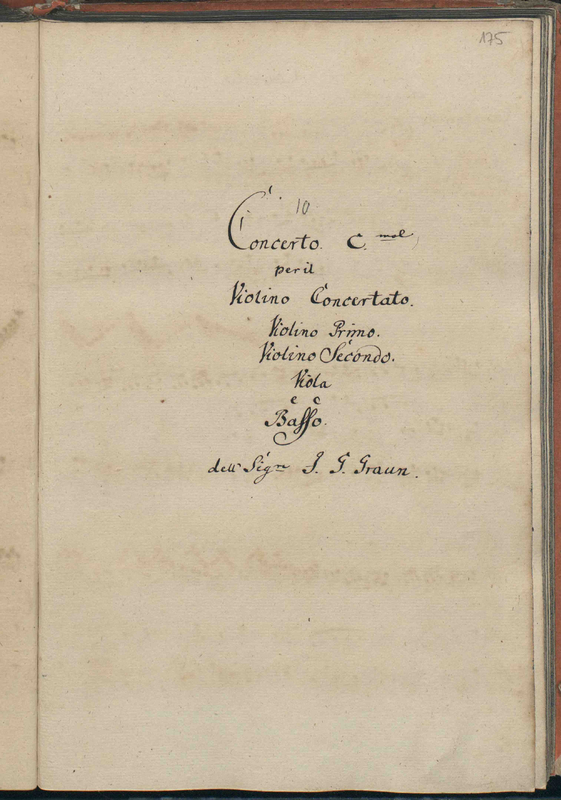 175
10
Concerto. C. mol,
per il
Violino Concertato.
Violino Primo.
Violino Secondo.
Viola
e
Basso.
dell Sigre J. G. Graun.